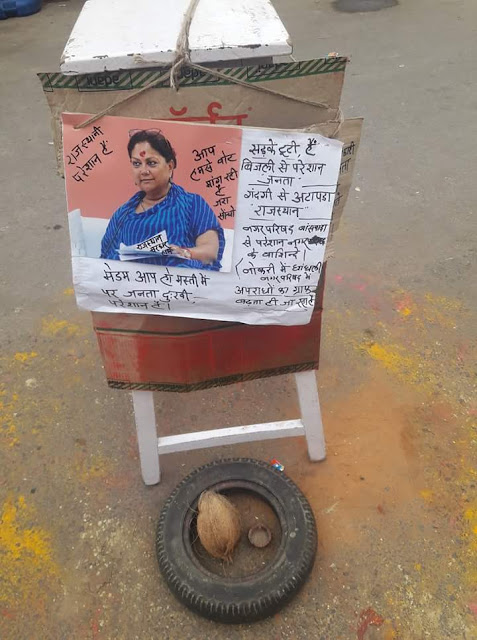 राजस्थानी
परेशान हैं
आप
हमसे वोट
मांग रही
है
जरा
सोचो
राजस्थान
मेडम आप हो मस्ती में
पर जनता दुःखी
परेशान है।
सड़के टूटी हैं
बिजली से परेशान
जनता
गंदगी से अटापड़ा
"राजस्थान"
नगरपरिषद बांसवाड़ा
से परेशान नगर
के वाशिन्दे
(नोकरी में धांधली
नगरपरिषद में
अपराधों का ग्राफ
बढ़ता ही जा रहा है